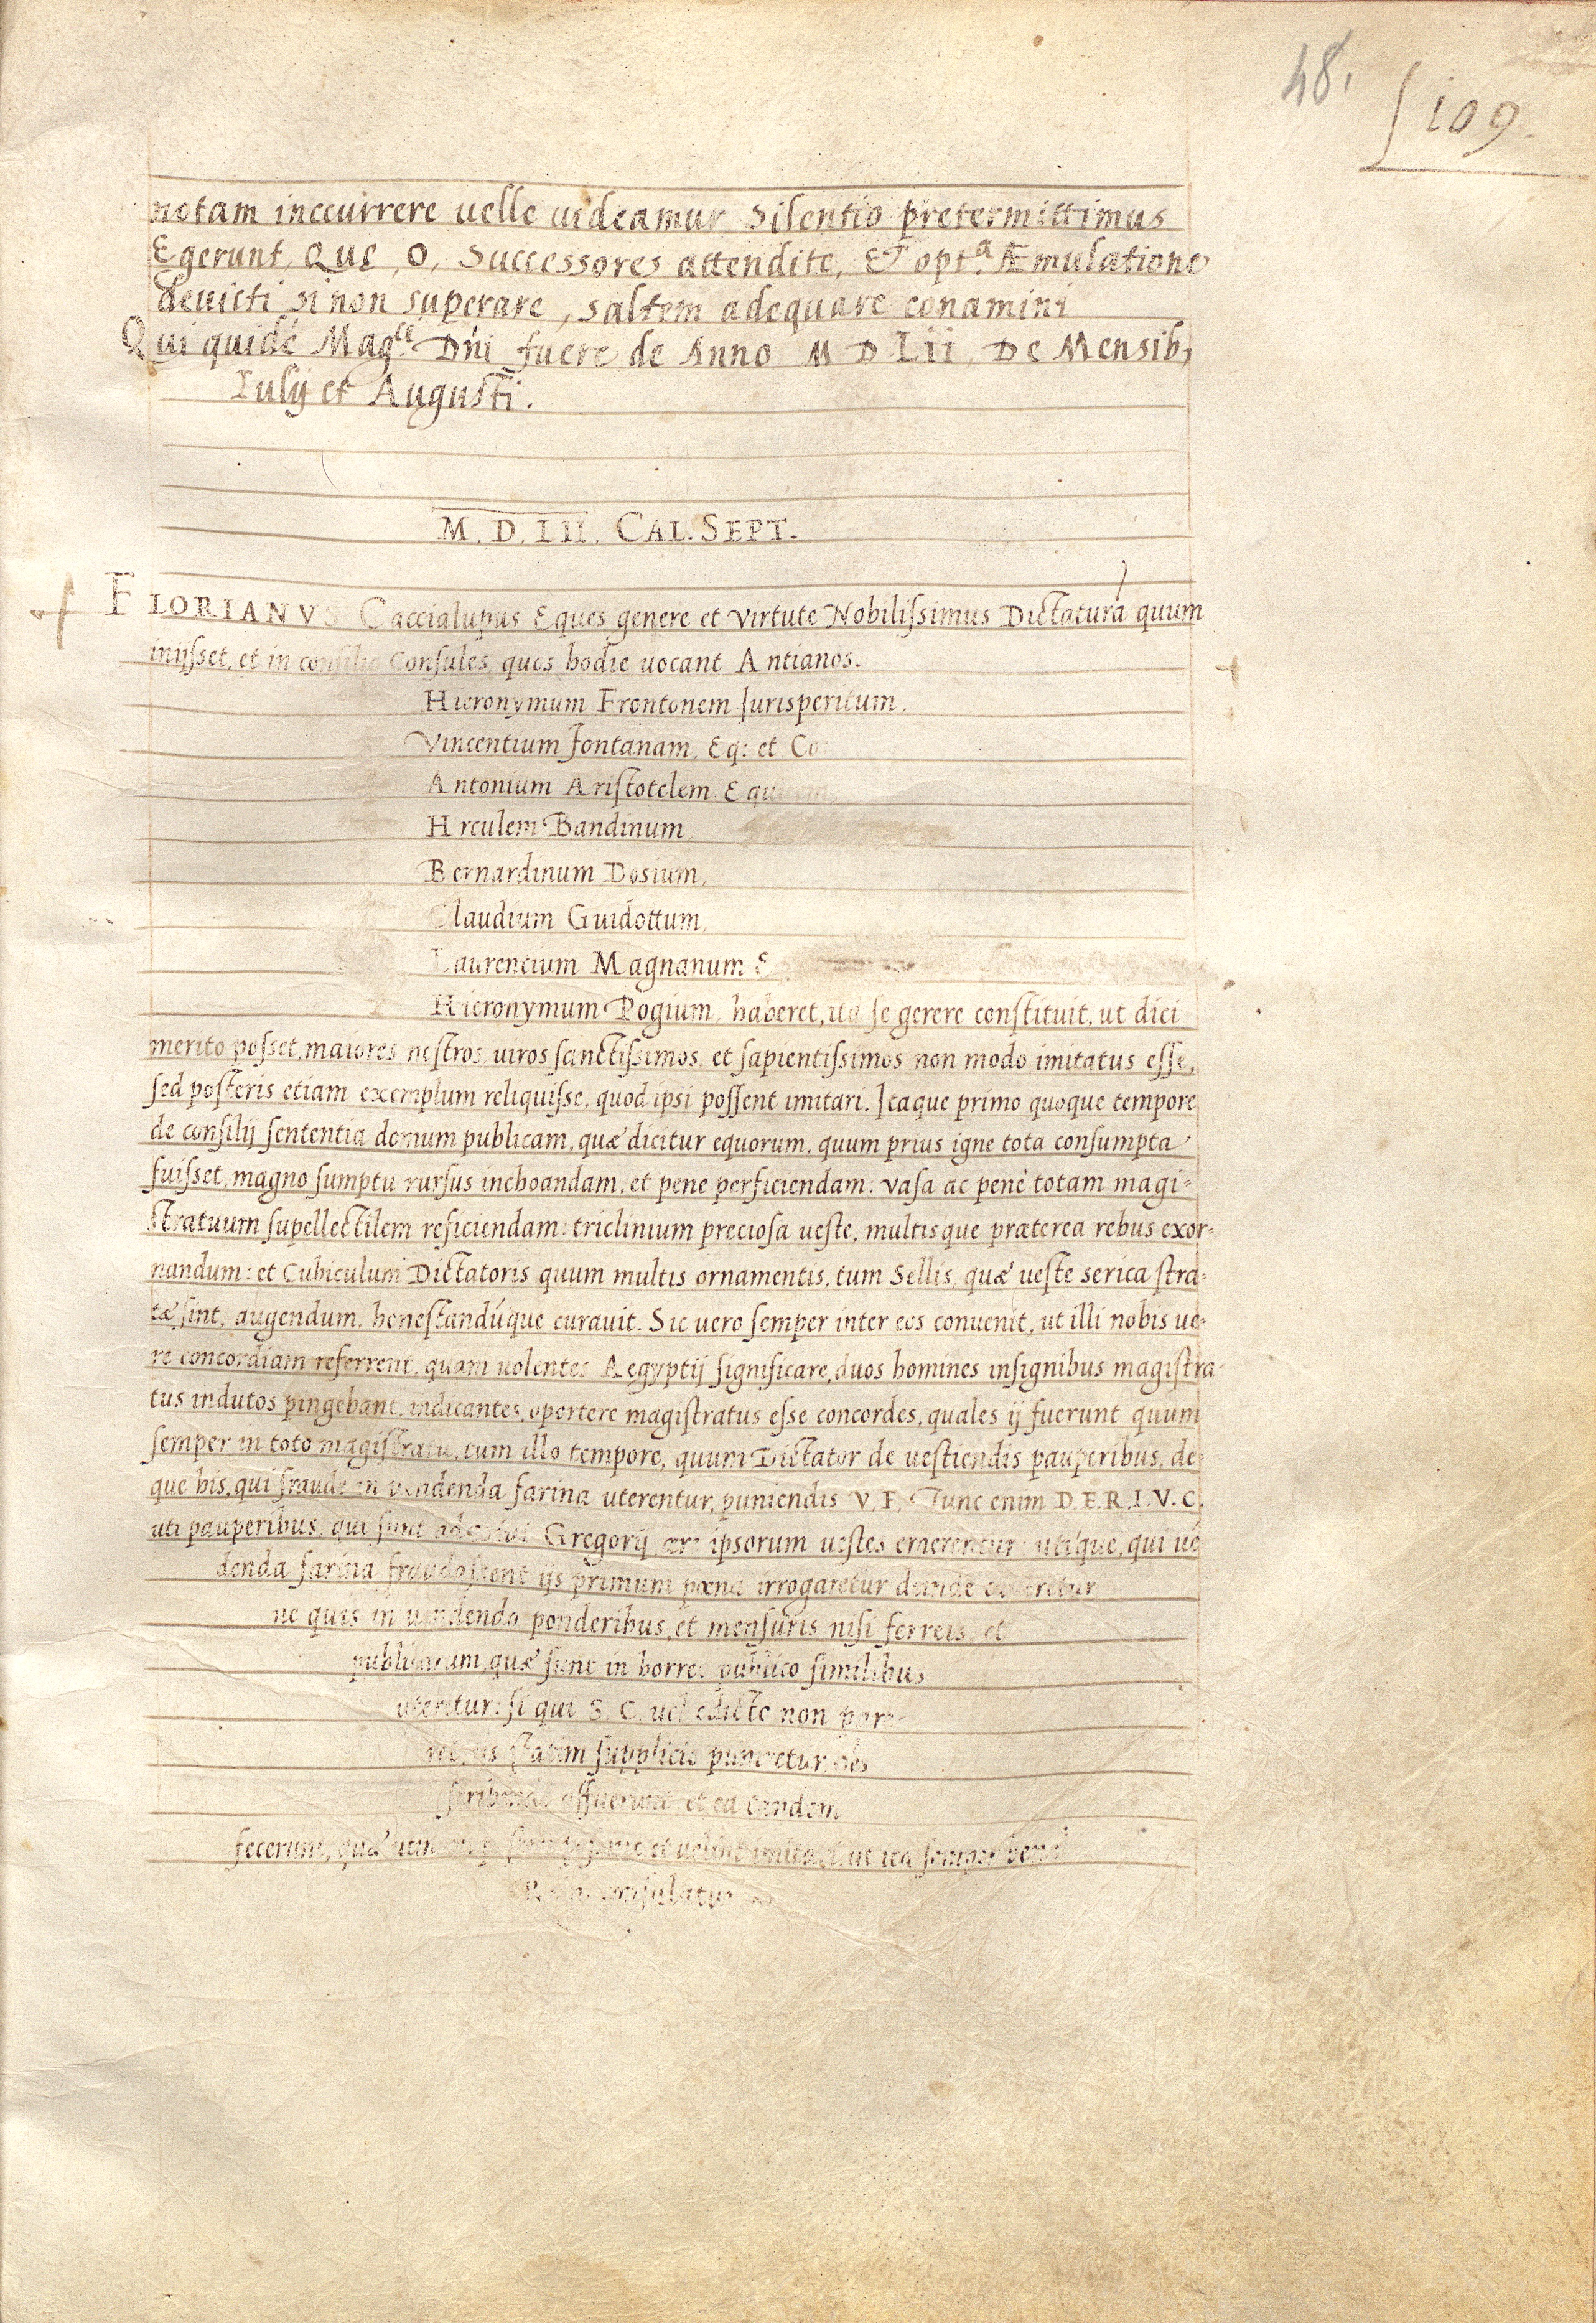 48.
109.
notam inccurrere uelle uideamur Silentio pretermittimus
Egerunt, Que, O, Successores attendite, ET opt.a Æmulatione
deuicti si non superare, saltem adequare conamini
Qui quidé Mag.ci Dñi fuere de Anno M D Lii, De Mensib,
Iulij et Augusti.
M. D. LII. CAL. SEPT.
FLORIANVS Caccialupus Eques genere et virtute Nobilissimus Dictatura quum
iniisset, et in consilio Consules, quos hodie uocant Antianos.
Hieronymum Frontonem Iurisperitum.
Vincentium Fontanam. Eq: et Co
Antonium Aristotelem. Equitem
Hrculem Bandinum
Bernardinum Dosium,
Claudium Guidottum,
Laurentium Magnanum E
Hieronymum Pogium, haberet, ita se gerere constituit, ut dici
merito posset, maiores nostros uiros sanctissimos, et sapientissimos non modo imitatus esse,
sed posteris etiam exemplum reliquisse, quod ipsi possent imitari. Itaque primo quoque tempore
de consilij sententia domum publicam, quæ dicitur equorum, quum prius igne tota consumpta
fuisset, magno sumptu rursus inchoandam, et pene perficiendam: vasa ac penè totam magi-
stratuum supellectilem reficiendam: triclinium preciosa ueste, multisque præterea rebus exor-
nandum: et Cubiculum Dictatoris quum multis ornamentis, tum Sellis, quæ ueste serica stra-
tæ sint, augendum, honestandúque curauit. Sic uero semper inter eos conuenit, ut illi nobis ue-
re concordiam referrent, quam uolentes Aegyptij significare, duos homines insignibus magistra-
tus indutos pingebant, indicantes, oportere magistratus esse concordes, quales ij fuerunt quum
semper in toto magistratu, tum illo tempore, quum Dictator de uestiendis pauperibus, de-
que his, qui fraude in uendenda farina uterentur, puniendis V. F. Tunc enim D. E. R. I. V. C.
uti pauperibus, qui sunt ad Gregorij ære ipsorum uestes emerentur: utíque, qui ué
denda farina fraudassent ijs primum pœna irrogaretur deinde caueretur
ne quis in uendendo ponderibus, et mensuris nisi ferreis, et
publicarum, quæ sunt in horreo publico similibus
uteretur: si qui S. C. uel edicto non pare-
ret, is statim supplicio puniretur,
affuerunt, et ea tandem
fecerunt, quæ et uelint imitari, ut ita semper bene
consulatur